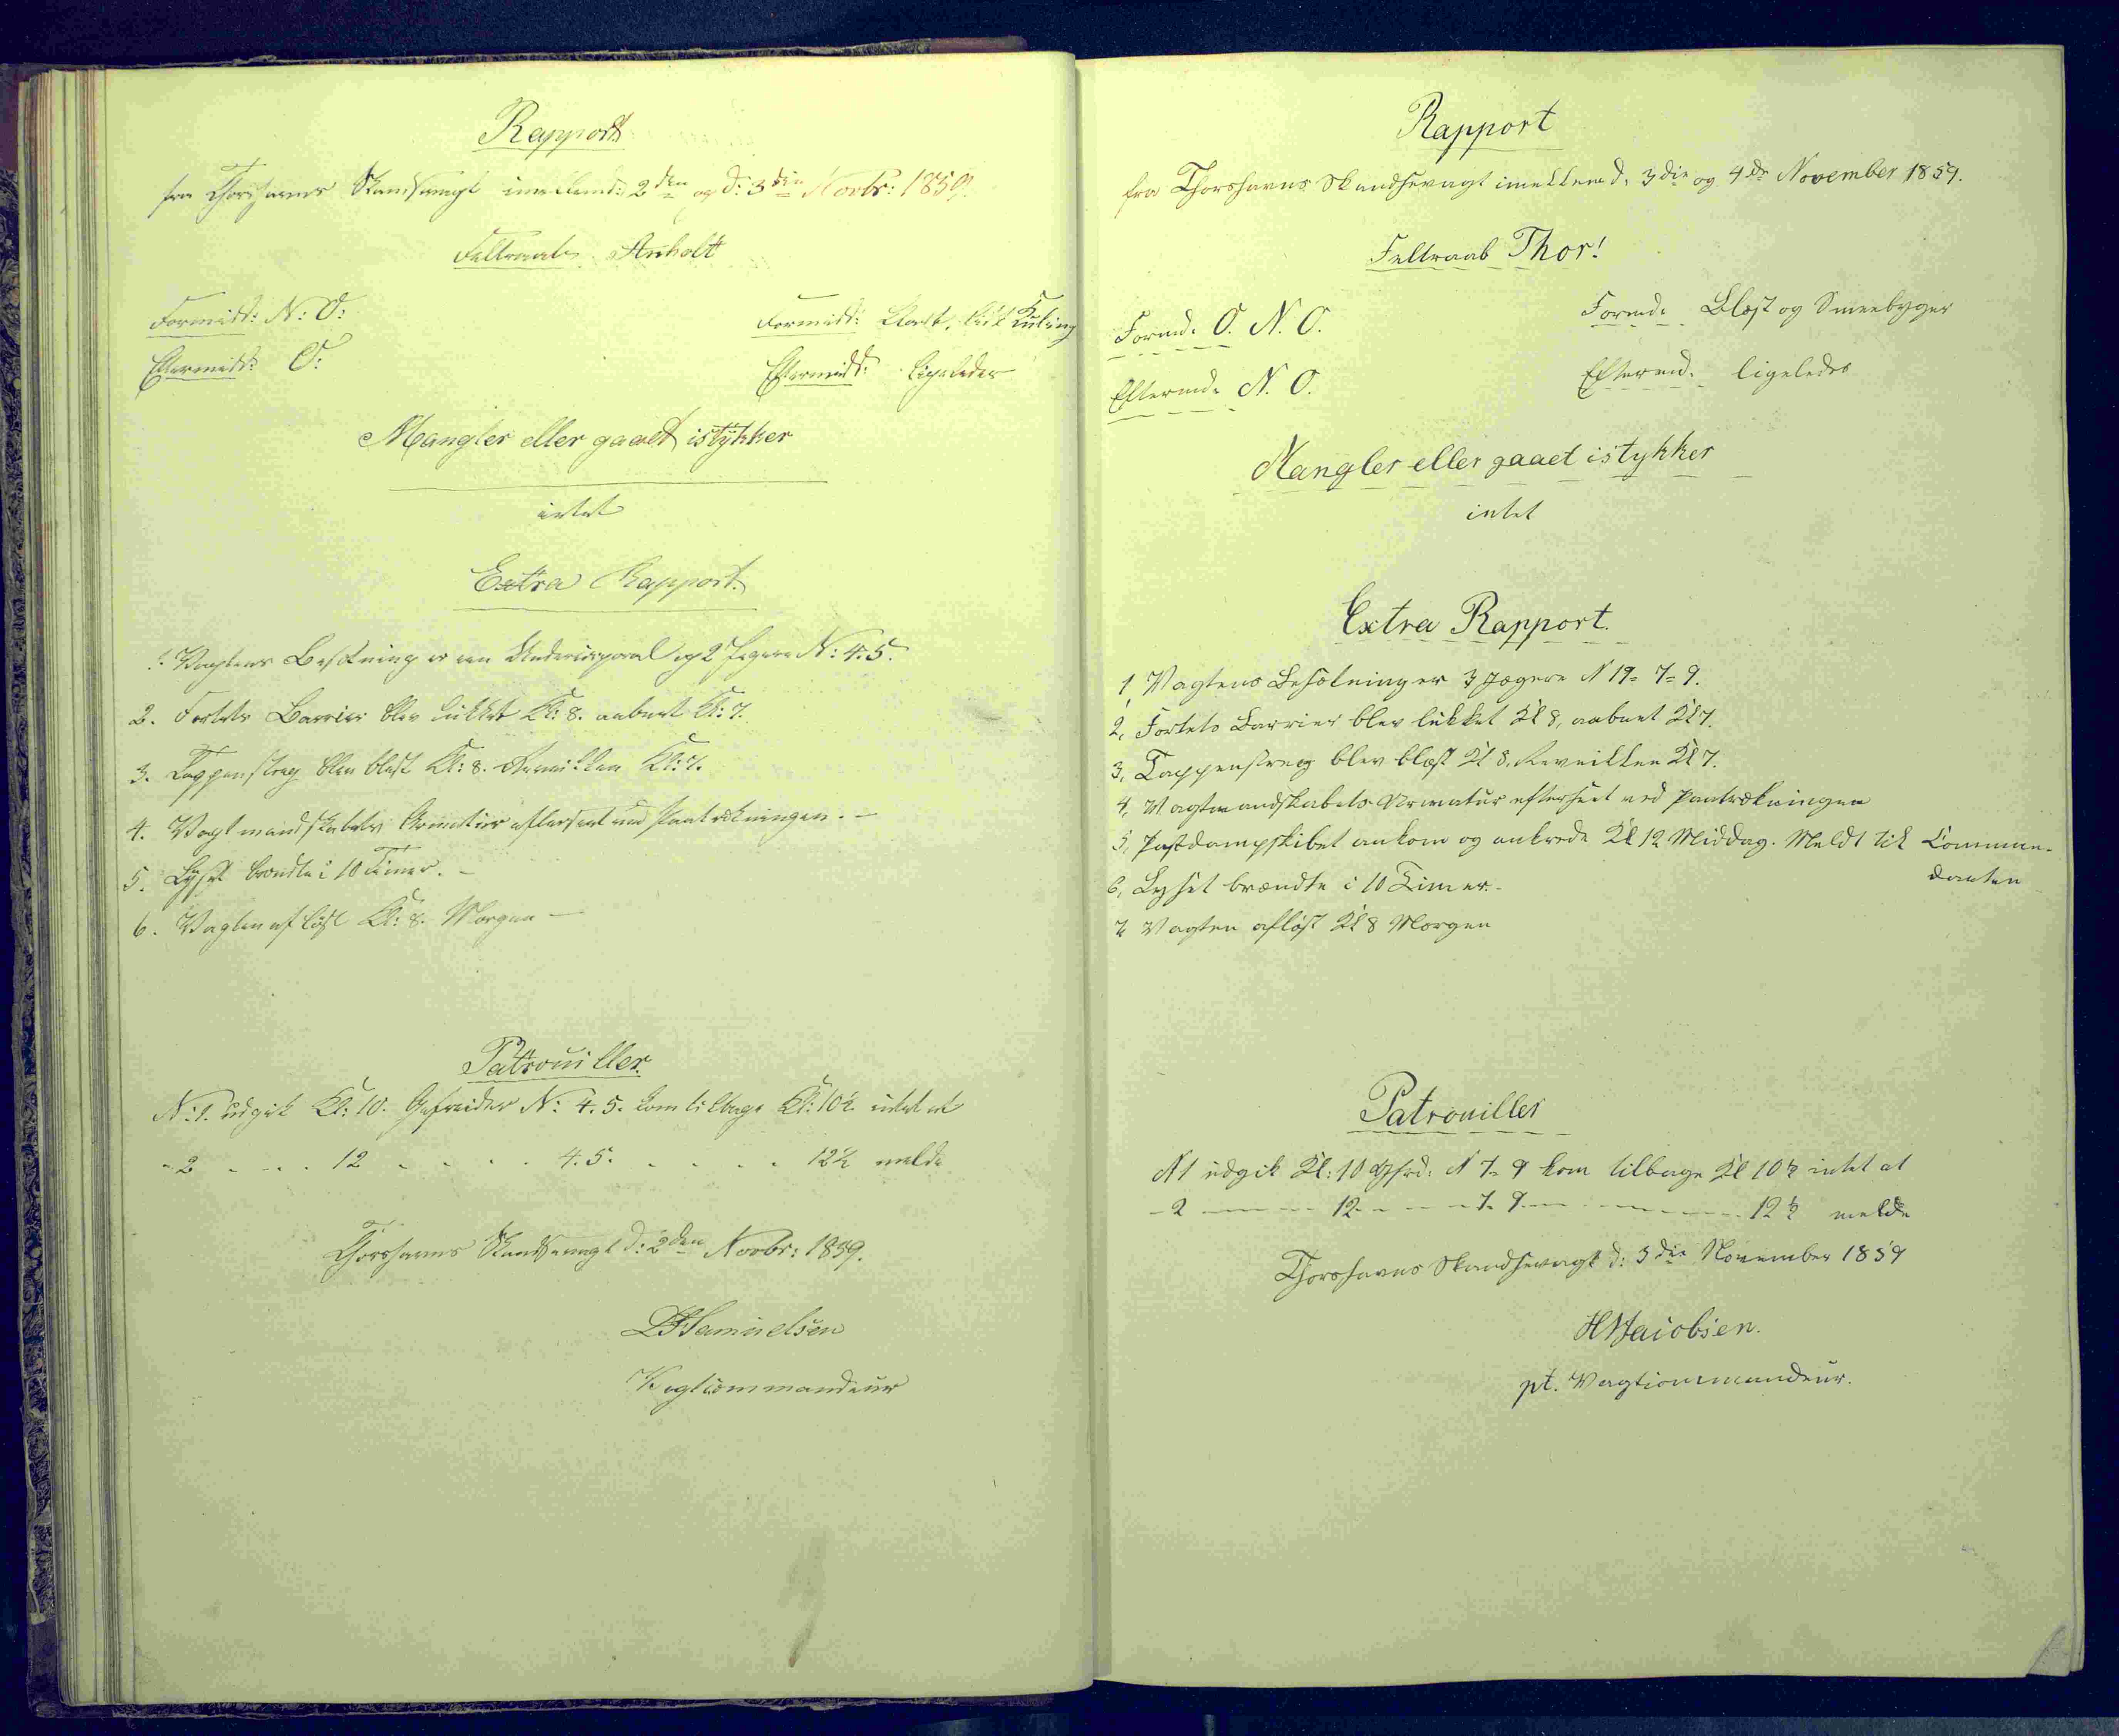 Rapport
fra Thorshavns Skandsevagt imellem d: 2den og d: 3die Novbr: 1859.
Feltraab Anholt
Formidd: N: O:
Formidd: Klart, lidt Kuling
Eftermidd: O:
Eftermidd: ligeledes
Mangler eller gaaet istykker
intet
Extra Rapport.
1. Vagtens Besætning er een Undercorporal og 2 Jægere N: 4. 5.
2. Fortets Barrier blev lukket Kl: 8. aabnet Kl: 7.
3. Tappenstreg blev blæst Kl: 8. Reveillen Kl: 7.
4. Vagtmandskabets Armatur efterseet ved Paatrækningen. -
5. Lyset brændte i 10 Timer. -
6. Vagten afløst Kl: 8. Morgen -
Patrouiller
N: 1. udgik Kl: 10. Gefreider N: 4. 5. kom tilbage Kl: 10½ intet at
- 2 - - - 12 - - - - 4. 5. - - - - - 12½ melde
Thorshavns Skandsevagt d: 2den Novbr: 1859.
Samuelsen
Vagtcommandeur
Rapport
fra Thorshavns Skandsevagt imellem d. 3die og 4de November 1859.
Feltraab Thor!
Formd. O. N. O.
Formd. Blæst og Sneebyger
Eftermd. N. O.
Eftermd. ligeledes
Mangler eller gaaet istykker
intet
Extra Rapport.
1, Vagtens Besætning er 3 Jægere N 19= 7= 9.
2, Fortets Barrier blev lukket Kl 8, aabnet Kl 7.
3, Tappenstreg blev blæst Kl 8, Reveillen Kl 7.
4, Vagtmandskabets Armatur efterseet ved Paatrækningen
5, Postdampskibet ankom og ankrede Kl 12 Middag. Meldt til Comman-
danten
6, Lyset brændte i 10 Timer -
7, Vagten afløst Kl 8 Morgen
Patrouiller
N 1 udgik Kl: 10 Gfrd: N 7= 9 kom tilbage Kl 10½ intet at
- 2 - - - - 12 - - - 7. 9. - - - - - - 12½ melde
Thorshavns Skandsevagt d: 3die November 1859
Jacobsen.
pt. Vagtcommandeur.